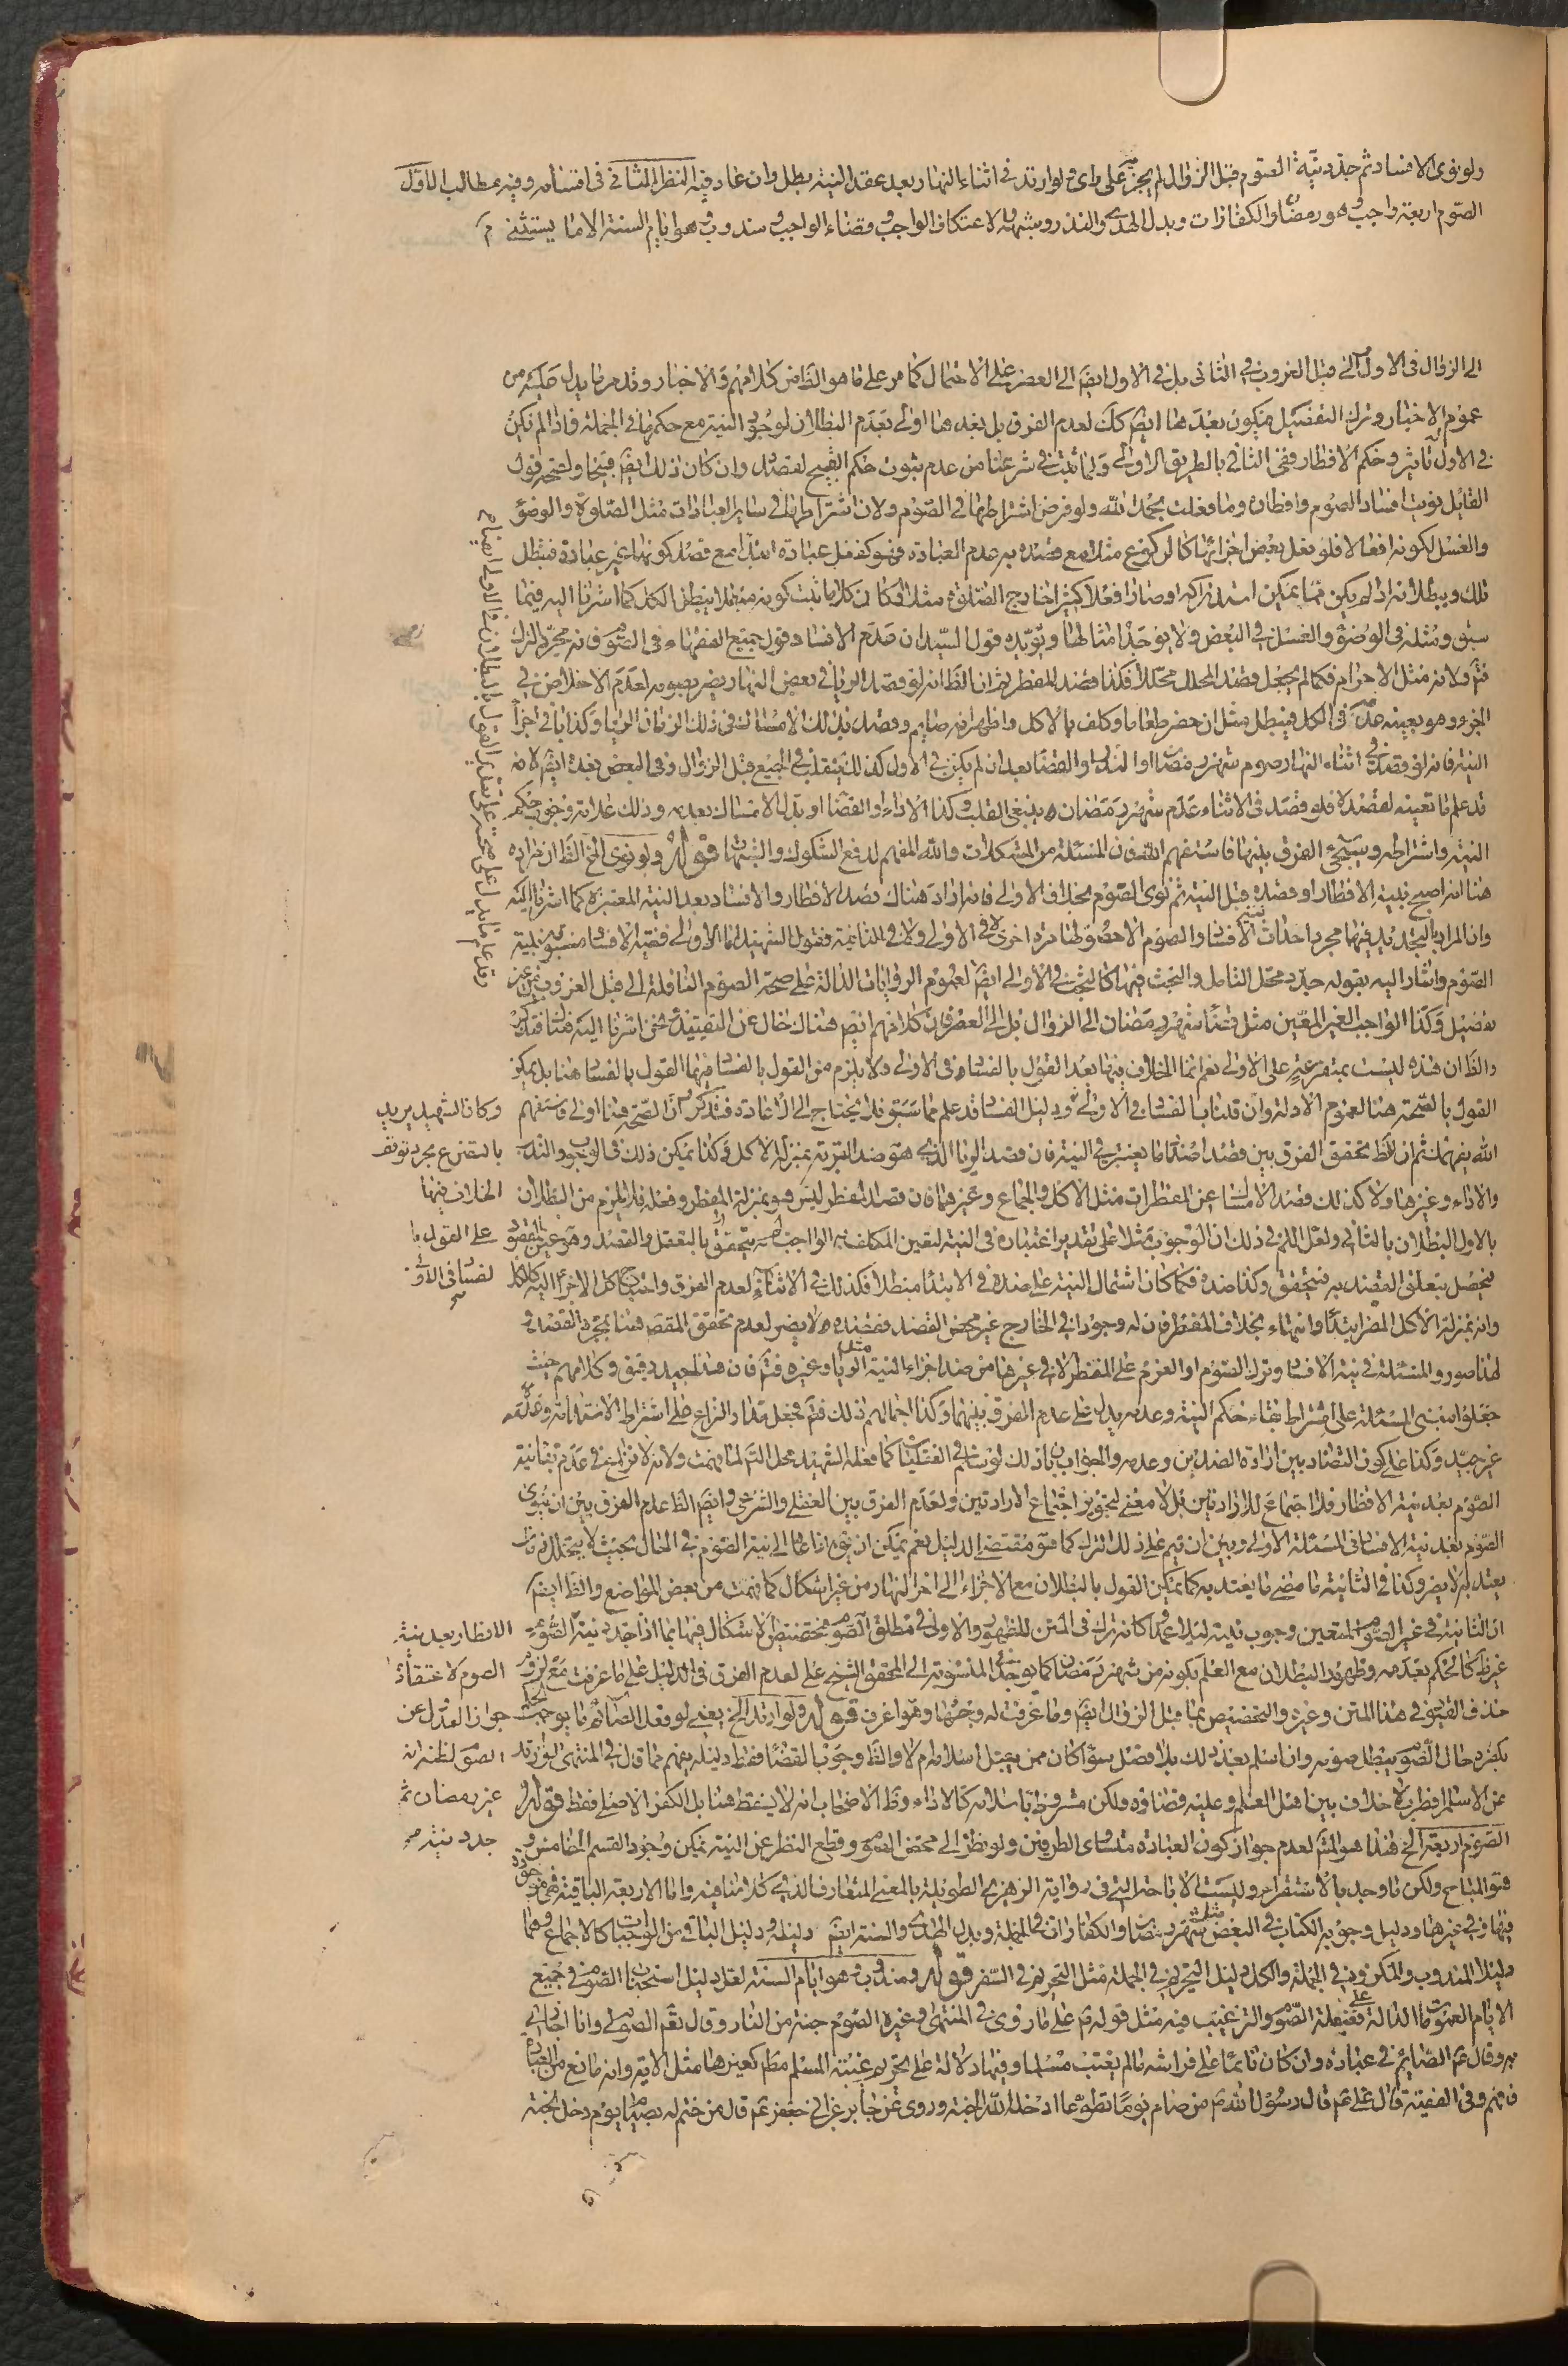 ولو نوى الافساد ثم جدد نية الصوم قبل الزوال لم يجز على راى ولو ارتد في اثناء النهار بعد عقد النية بطل وان عاد فيه النظر الثاني في اقسامه وفيه مطالب الاول
الصوم اربعة واجب وهو رمضان والكفارات وبدل الهدى والنذر وشبهه والاعتكاف الواجب وقضاء الواجب ومندوب وهو ايام السنة الا ما يستثنى
الى الزوال في الاول الى قبل الغروب في الثانى بل في الاول ايضا الى العصر على الاحتمال كما مر على ما هو الظ من كلامهم والاخبار وقد مر ما يدل عليه من
عموم الاخبار وترك التفصيل فيكون بعدها ايضا كك لعدم الفرق بل بعدها اولى بعدم البطلان لوجود النية مع حكمها في الجملة فاذا لم يكن
في الاول تاثير وحكم الافطار ففي الثاني بالطريق الاولى ولما ثبت في شرعنا من عدم ثبوت حكم القبيح لقصده وان كان ذلك ايضا قبيحا ولصحة قول
القائل نويت افساد الصوم وافطاره وما فعلت بحمد الله ولو فرض اشتراطها في الصوم ولان اشتراطها في ساير العبادات مثل الصلوة والوضوء
والغسل لكونه افعالا فلو فعل بعض اجزائها كالركوع مثلا مع قصده به عدم العبادة فهو كفعل عبادة ابتداء مع قصد كونها غير عبادة فتبطل
تلك ويبطلانه اذا لم يكن مما يمكن استدراكه او صار فعلا كثيرا خارج الصلوة مثلا او كان كلاما ثبت كونه مبطلا يبطل الكل كما اشرنا اليه فيما
سبق ومثله في الوضوء والغسل في البعض ولا يوجد امثالها ويؤيده قول السيد ان عدم الافساد قول جميع الفقهاء في الصوم فانه مجرد الترك
فتم ولانه مثل الاحرام فكما لم يجعل قصد المحلل محللا فكذا قصد المفطر ثم ان الظ انه لو قصد الريا في بعض النهار يضر بصومه لعدم الاخلاص في
الجزء وهو بعينه عدمه في الكل فيبطل مثل ان حضر طعاما وكلف بالاكل واظهر انه صايم وقصد بذلك الامساك في ذلك الزمان الريا وكذا باقي اجزاء
النية فانه لو قصد في اثناء النهار صوم شهر رمضان او النذر او القضاء بعد ان لم يكن في الاول كذلك ينقلب في الجميع قبل الزوال وفي البعض بعده ايضا لانه
قد علم ما تعينه لقصده فلو قصد في الاثناء عدم شهر رمضان ينبغي القلب وكذا الاداء او القضاء او بدل الامساك بعدمه وذلك علامة وجوب حكم
النية واشتراطه وسيجيء الفرق بينها فاستفهم الله فان المسئلة من المشكلات والله المفهم لدفع الشكوك والشبهات قوله ولو نوى الخ الظ ان مراده
هنا انه اصبح بنية الافطار او قصده قبل النية ثم نوى الصوم بخلاف الاولى فانه اراد هناك قصد الافطار والافساد بعد النية المعتبرة كما اشرنا اليه
وان المراد بالتجديد فيها مجرد احداث نية الافساد والصوم لا حصولها مرة اخرى لا في الاولى ولا في الثانية فقول الشهيد اما الاولى فنية الافساد مسبوق بنية
الصوم واشار اليه بقوله جدد محل التامل والبحث فيها كالبحث في الاولى ايضا لعموم الروايات الدالة على صحة الصوم النافلة الى قبل الغروب من غير
تفصيل وكذا الواجب الغير المعين مثل قضاء شهر رمضان الى الزوال بل الى العصر فان كلامهم ايضا هناك خال عن التقييد نحن اشرنا اليه هناك فتذكر
والظ ان هذه ليست بمتفرعة على الاولى نعم انما الخلاف فيها بعد القول بالفساد في الاولى ولا يلزم من القول بالفساد فيها القول بالفساد هنا بل يمكن
القول بالصحة هنا لعموم الادلة وان قلنا بالفساد في الاولى ودليل الفساد قد علم مما سبق فلا يحتاج الى الاعادة فتذكر ان الصحة هنا اولى فاستفهم
الله يفهمك ثم ان الظ تحقق الفرق بين قصد اضداد ما يعتبر في النية فان قصد الريا الذي هو ضد القربة بمنزلة الاكل وكذا يمكن ذلك في الوجوب والندب
والاداء وغيرها ولا كذلك قصد الامساك عن المفطرات مثل الاكل والجماع وغيرهما فان قصد المفطر ليس هو بمنزلة المفطر وفعله فلا يلزم من البطلان
بالاول البطلان بالثاني ولعل السر في ذلك ان الوجوب مثلا على تقدير اعتباره في النية لتعين المكلف به الواجب انه يتحقق بالتعقل والقصد وهو عين المقصود
فيحصل بتعلق القصد به فيتحقق وكذا ضده فكما كان اشتمال النية على ضده في الابتداء مبطلا فكذلك في الاثناء لعدم الفرق واحتياج كل الاجزاء اليه كالكل
وانه بمنزلة الاكل المضر ابتداء وانتهاء بخلاف المفطر فان له وجودا في الخارج غير محض القصد فقصده لا يضر لعدم تحقق المقصود هنا بمجرد القصد و
لهذا صوروا المسئلة في نية الافساد وترك الصوم او العزم على المفطر لا في غيرها من ضد اجزاء النية مثل الريا وغيره فتم فان هذا جيد دقيق وكلامهم حيث
جعلوا مبنى المسئلة على اشتراط بقاء حكم النية وعدمه يدل على عدم الفرق بينهما وكذا اجمالهم ذلك فتم فجعل مدار النزاع على اشتراط الاستدامة وعدمه
غير جيد وكذا على كون التضاد بين ارادة الضدين وعدمه والجواب بان ذلك لو سلم في العقليات كما فعله الشهيد محل التامل لما فهمت ولانه لا نزاع في عدم بقاء نية
الصوم بعد نية الافطار فلا اجتماع للارادتين بل لا معنى لتجويز اجتماع الارادتين ولعدم الفرق بين العقلي والشرعي وايضا الظ عدم الفرق بين ان ينوى
الصوم بعد نية الافساد في المسئلة الاولى وبين ان يتم على ذلك الترك كما هو مقتضى الدليل نعم يمكن ان يق اذا عاد الى نية الصوم في الحال بحيث لا يتخلل زمان
يعتد به لا يضر وكذا في الثانية ما مضى ما يعتد به كما يمكن القول بالبطلان مع الاجزاء الى اخر النهار من غير اشكال كما فهمت من بعض المواضع والظ ايضا
ان الثانية في غير الصوم المتعين وجوب نيته ليلا عمدا كانه ترك في المتن للظهور والاولى في مطلق الصوم مختصة بل لا اشكال فيها فيما اذا جدد نية الصوم
غيره كالحكم بعدمه وظهور البطلان مع العلم بكونه من شهر رمضان كما يوجد في المنسوبة الى المحقق الشيخ علي لعدم الفرق في الدليل على ما عرفت مع لزوم
حذف القيود في هذا المتن وغيره والتخصيص بما قبل الزوال ايضا وما عرفت له وجها وهو اعرف قوله ولو ارتد الخ يعنى لو فعل الصائم ما يوجب الحكم
بكفره حال الصوم يبطل صومه وان اسلم بعد ذلك بلا فصل سواء كان ممن يقبل اسلامه ام لا والظ وجوب القضاء فقط دليله يفهم مما قال في المنتهى لو ارتد
عن الاسلام افطر بلا خلاف بين اهل العلم وعليه قضاؤه ولكن مشروط باسلامه كالاداء وظ الاصحاب انه لا يسقط هنا بل الكفر الاصلي فقط قوله
الصوم اربعة الخ هذا هو المتم لعدم جواز كون العبادة متساوى الطرفين ولو نظر الى محض الصوم وقطع النظر عن النية يمكن وجود القسم الخامس و
هو المباح ولكن ما وجد بالاستقراء وليست الاباحة التي في رواية الزهري الطويلة بالمعنى المتعارف الذي كلامنا فيه واما الاربعة الباقية فهي موجودة
فيها وفي غيرها ودليل وجوبه الكتاب في البعض مثل شهر رمضان والكفارات في الجملة وبدل الهدى والسنة ايضا دليله ودليل الباقي من الواجبات كالاجماع وهما
دليلا المندوب والمكروه في الجملة والكل دليل التحريم في الجملة مثل التحريم في السفر قوله ومندوب وهو ايام السنة لعل دليل استحباب الصوم في جميع
الايام العمومات الدالة على فضيلة الصوم والترغيب فيه مثل قوله ص على ما روى في المنتهى وغيره الصوم جنة من النار وقال تعم الصوم لي وانا اجازي
به وقال ص الصائم في عبادة وان كان نائما على فراشه ما لم يغتب مسلما وفيها دلالة على تحريم غيبة المسلم مطم كغيرها مثل الاية وانه مانع من العبادة
فافهم وفي الفقيه قال علي ع قال رسول الله ص من صام يوما تطوعا ادخله الله الجنة وروى عن جابر عن ابي جعفر ع قال من ختم له بصيام يوم دخل الجنة
وقد علم ما يدل على صحته على تقدير القول بالبطلان في الاولى ايضا ص
وكان الشهيد يريد
بالتفرع مجرد توقف
الخلاف فيها
على القول با
لفساد في الاول
الافطار بعد نية
الصوم لا عتقاد
جواز العدول عن
الصوم لظنه انه
غير رمضان ثم
جدد نيته